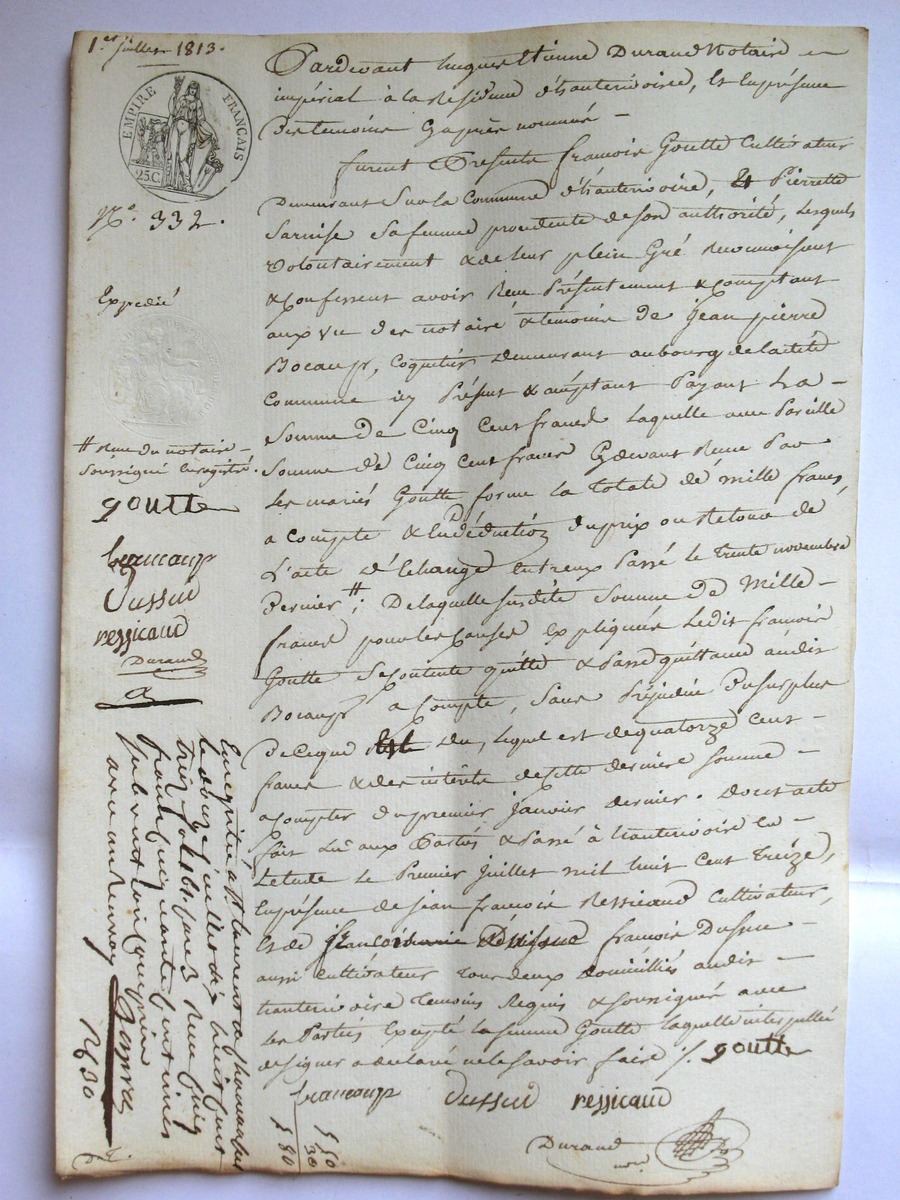 1er juillet 1813.
EMPIRE FRANÇAIS
25 C.
No. 332.
Expedié
# Reçue du notaire
soussigné enregistré.
goutte
beaucoup
Dussuc
ressicaud
Durand
Pardevant Jacques Etienne Durand Notaire
impérial à la Résidence d'hauterivoire, Et En présence
des temoins Cyaprès nommés
furent Présents francois Goutte Cultivateur
Demeurant Sur la Commune d'hauterivoire, Et Pierrette
sa femme procedente de son authorité, Lesquels
Volontairement & de leur plein Gré Reconnoissent
& Confessent avoir Reçu Présentement & Comptant
aux vu des notaire & temoins de jean pierre
Bocaup, Coquetier demeurant au bourg de ladite
Commune icy Présent & aceptant Payant La
Somme de Cinq Cent francs Laquelle avec Pareille
Somme de Cinq Cent francs Cydevant Reçue Par
Les mariés Goutte forme la Totale de mille francs,
a Compte & En déduction du prix ou Retour de
L'acte d'Echange Entreux Passé le trente novembre
dernier #; De laquelle Susdite Somme de Mille
francs pour les Causes Expliquées Ledit francois
Goutte Se Contente quitte & Passe quittance audit
Bocaup a Compte, Sans Préjudice du Surplus
De Ceque du, Lequel est de quatorze Cent
francs & des intérêts de cette derniere Somme
a Compter du premier janvier dernier. dont acte
fait Lu aux Parties & Passé à hauterivoire En
Letude Le Premier Juillet mil huit Cent Treize,
En présence de jean francois Ressicaud Cultivateur,
Et de francois Dussuc
aussi Cultivateur tous deux domiciliés audit
hauterivoire Temoins Requis & soussignés avec
Les Parties Excepté la femme Goutte Laquelle interpellée
de signer a déclaré ne le savoir faire /. goutte
beaucoup Dussuc ressicaud
Durand
Enregistré à St Laurent de Chamousset
le douze juillet 1813
Reçu cinq
francs cinquante centimes
avec un Renvoy
1.50
30
1 80